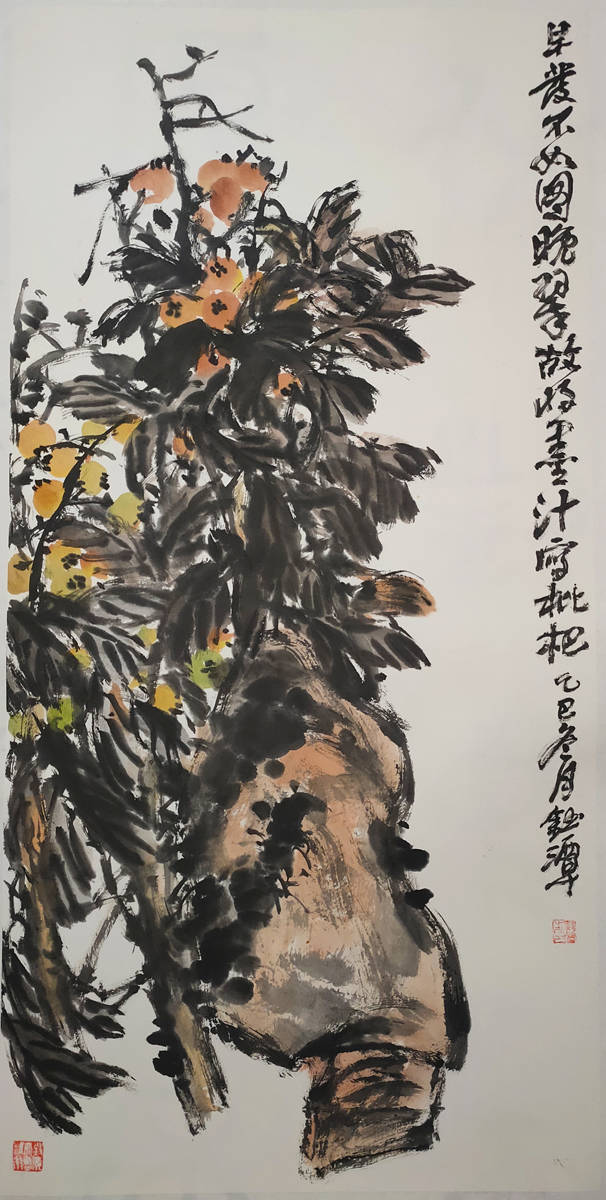 早发不如园晚翠故将墨汁写枇杷乙巳冬月钰潭